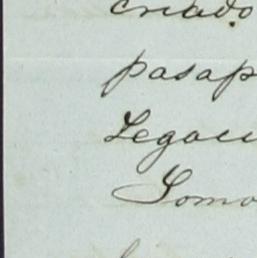 criado
pasap
Legaci
Tomo